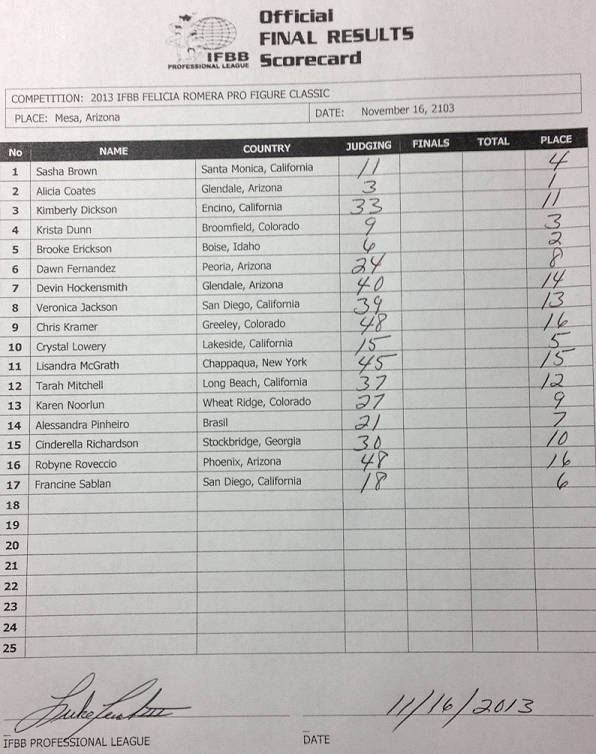 Official
FINAL RESULTS
Scorecard
IFBB
PROFESSIONAL LEAGUE
COMPETITION: 2013 IFBB FELICIA ROMERA PRO FIGURE CLASSIC
PLACE: Mesa, Arizona DATE: November 16, 2103
No NAME COUNTRY JUDGING FINALS TOTAL PLACE
1 Sasha Brown Santa Monica, California 11 4
2 Alicia Coates Glendale, Arizona 3 1
3 Kimberly Dickson Encino, California 33 11
4 Krista Dunn Broomfield, Colorado 9 3
5 Brooke Erickson Boise, Idaho 6 2
6 Dawn Fernandez Peoria, Arizona 24 8
7 Devin Hockensmith Glendale, Arizona 40 14
8 Veronica Jackson San Diego, California 39 13
9 Chris Kramer Greeley, Colorado 48 16
10 Crystal Lowery Lakeside, California 15 5
11 Lisandra McGrath Chappaqua, New York 45 15
12 Tarah Mitchell Long Beach, California 37 12
13 Karen Noorlun Wheat Ridge, Colorado 27 9
14 Alessandra Pinheiro Brasil 21 7
15 Cinderella Richardson Stockbridge, Georgia 30 10
16 Robyne Roveccio Phoenix, Arizona 48 16
17 Francine Sablan San Diego, California 18 6
18
19
20
21
22
23
24
25
11/16/2013
IFBB PROFESSIONAL LEAGUE DATE